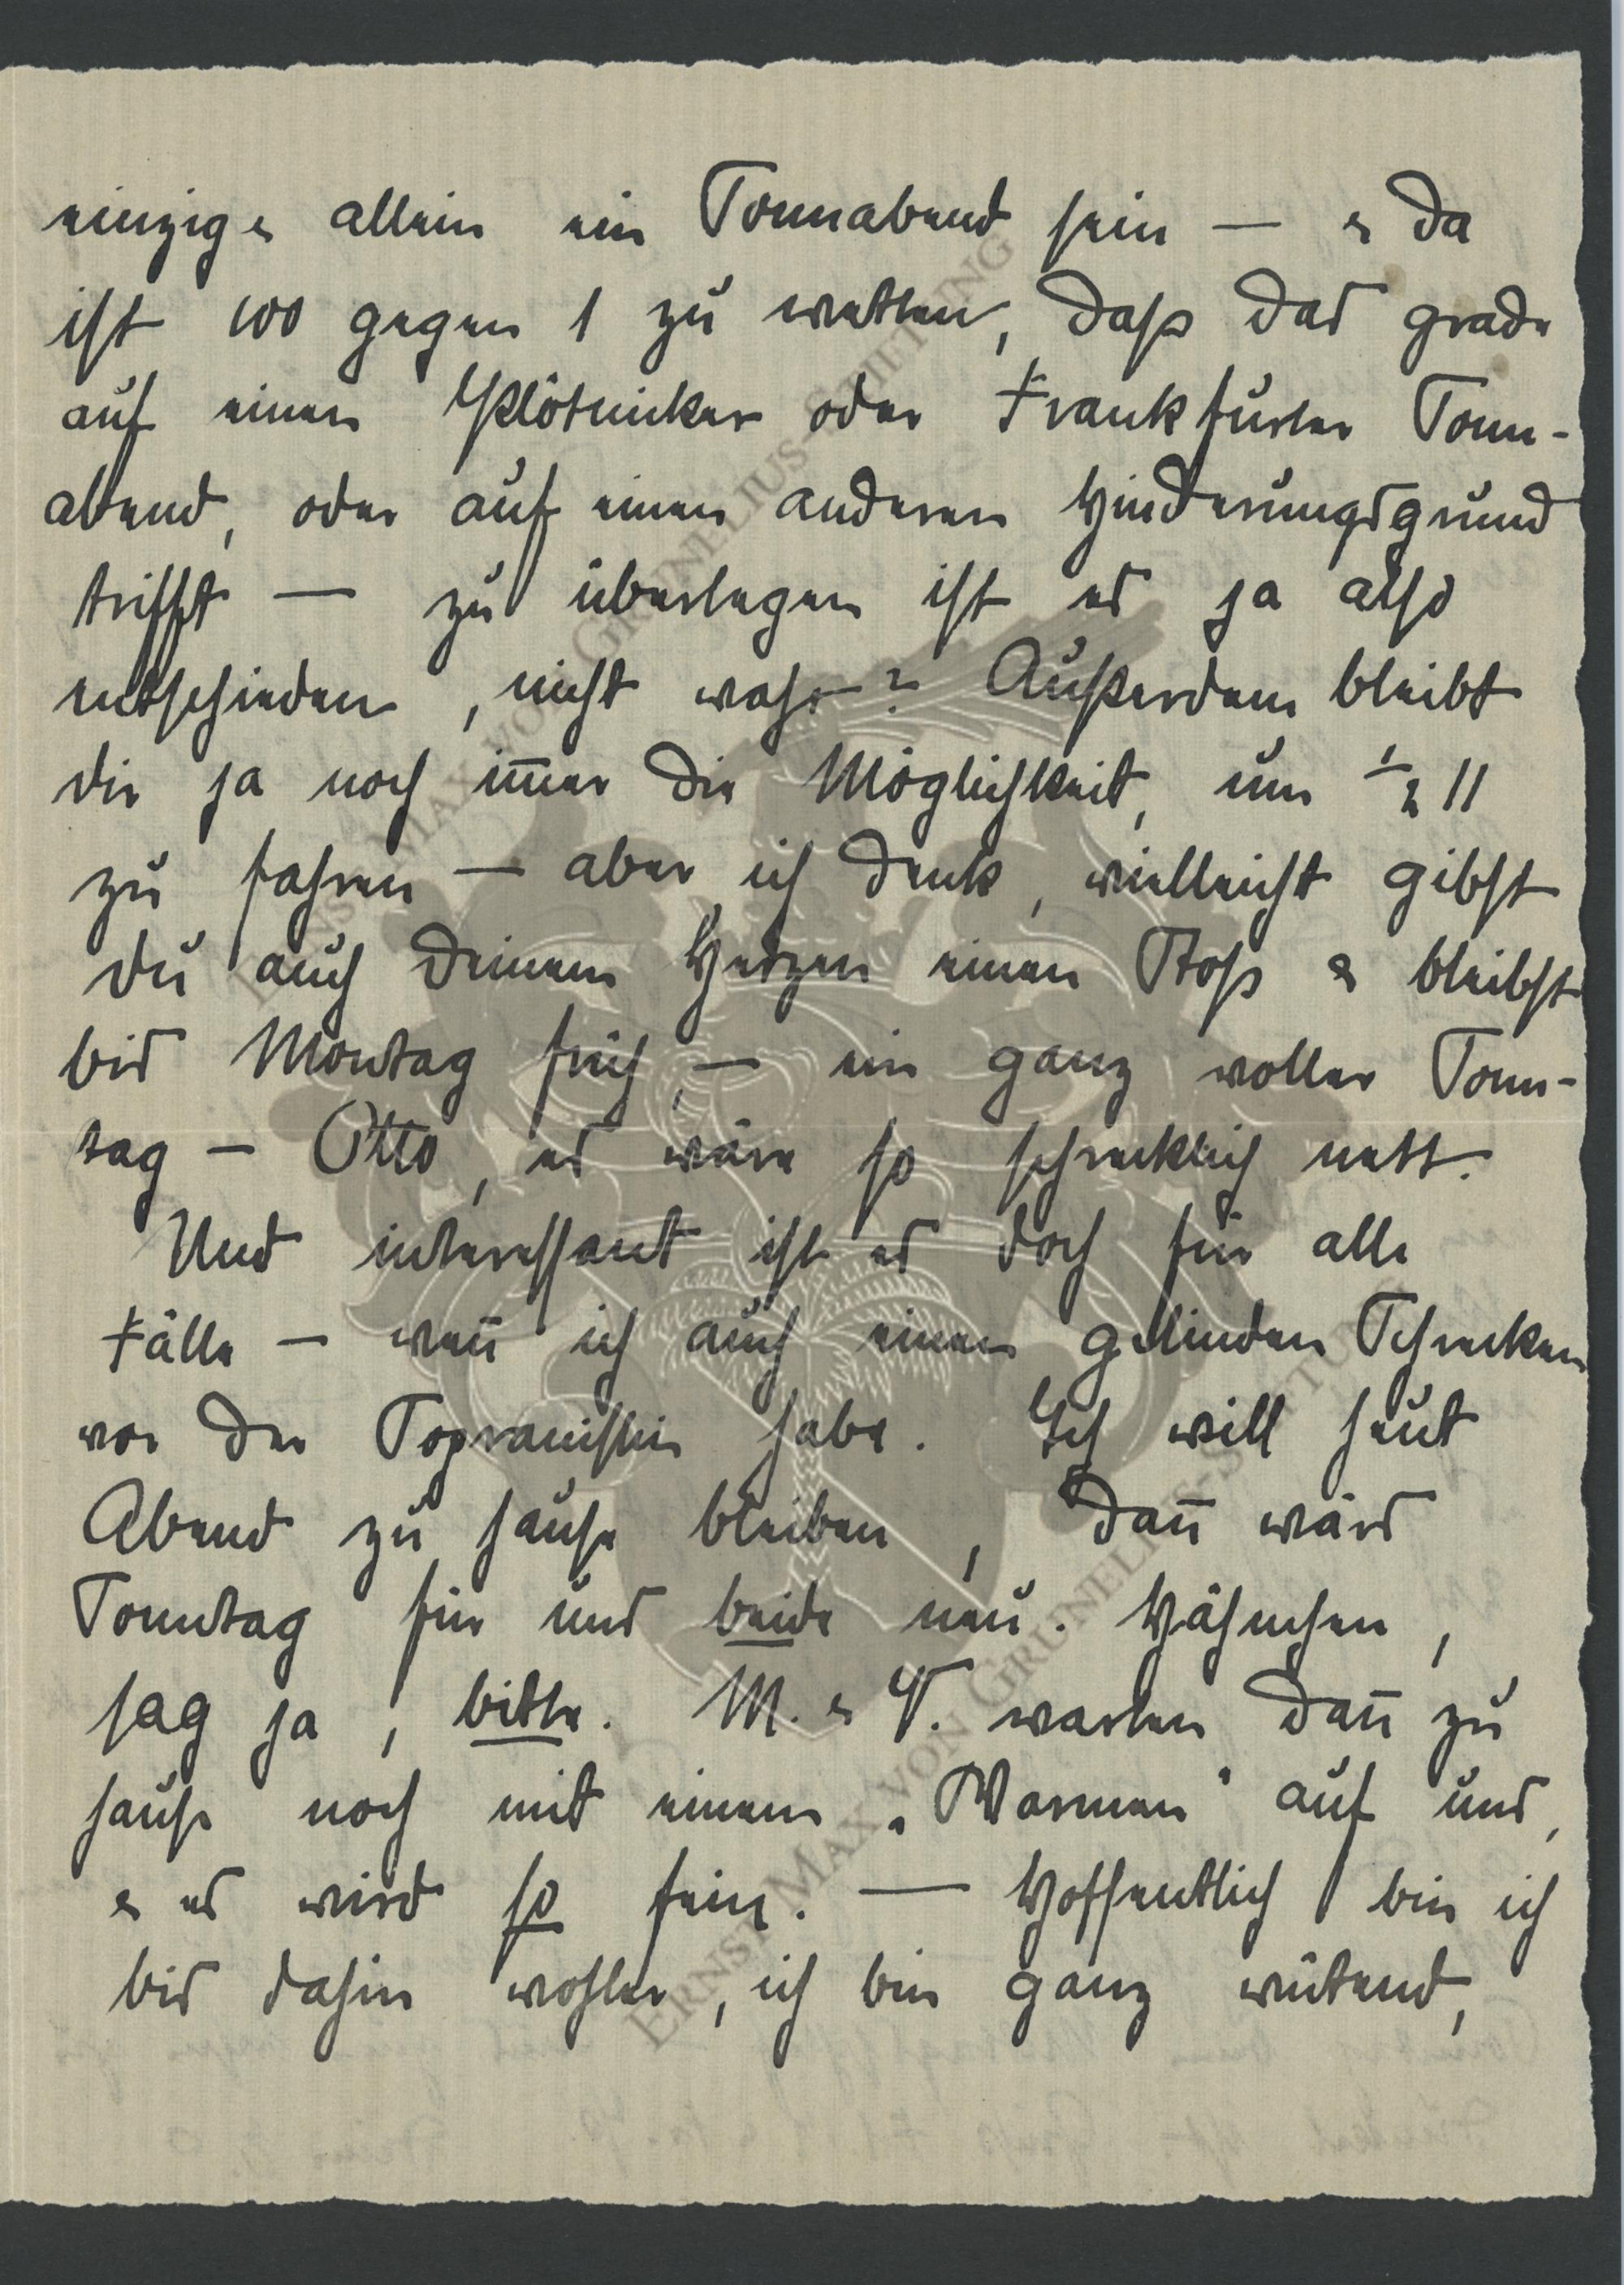 einzig & allein ein Sonnabend sein — & da
ist 100 gegen 1 zu wetten, daß das grade
auf einen Klötnicker oder Frankfurter Sonn-
abend, oder auf einen anderen Hinderungsgrund
trifft — zu überlegen ist es ja also
entschieden, nicht wahr? Außerdem bleibt
dir ja noch im̅er die Möglichkeit, um ½ 11
zu fahren — aber ich denk, vielleicht gibst
du auch deinem Herzen einen Stoß & bleibst
bis Montag früh, — ein ganz voller Sonn-
tag — Otto, es wäre so schrecklich nett.
Und interessant ist es doch für alle
Fälle — wen̅ ich auch einen gelinden Schrecken
vor der Sopranistin habe. Ich will heut
Abend zu hause bleiben, dan̅ wärs
Sonntag für uns beide neu. Hähnchen,
sag ja, bitte. M. & V. warten dan̅ zu
hause noch mit einem „Warmen“ auf uns,
& es wird so fein. — Hoffentlich bin ich
bis dahin wohler, ich bin ganz wütend,
ERNST MAX VON GRUNELIUS-STIFTUNG
ERNST MAX VON GRUNELIUS-STIFTUNG